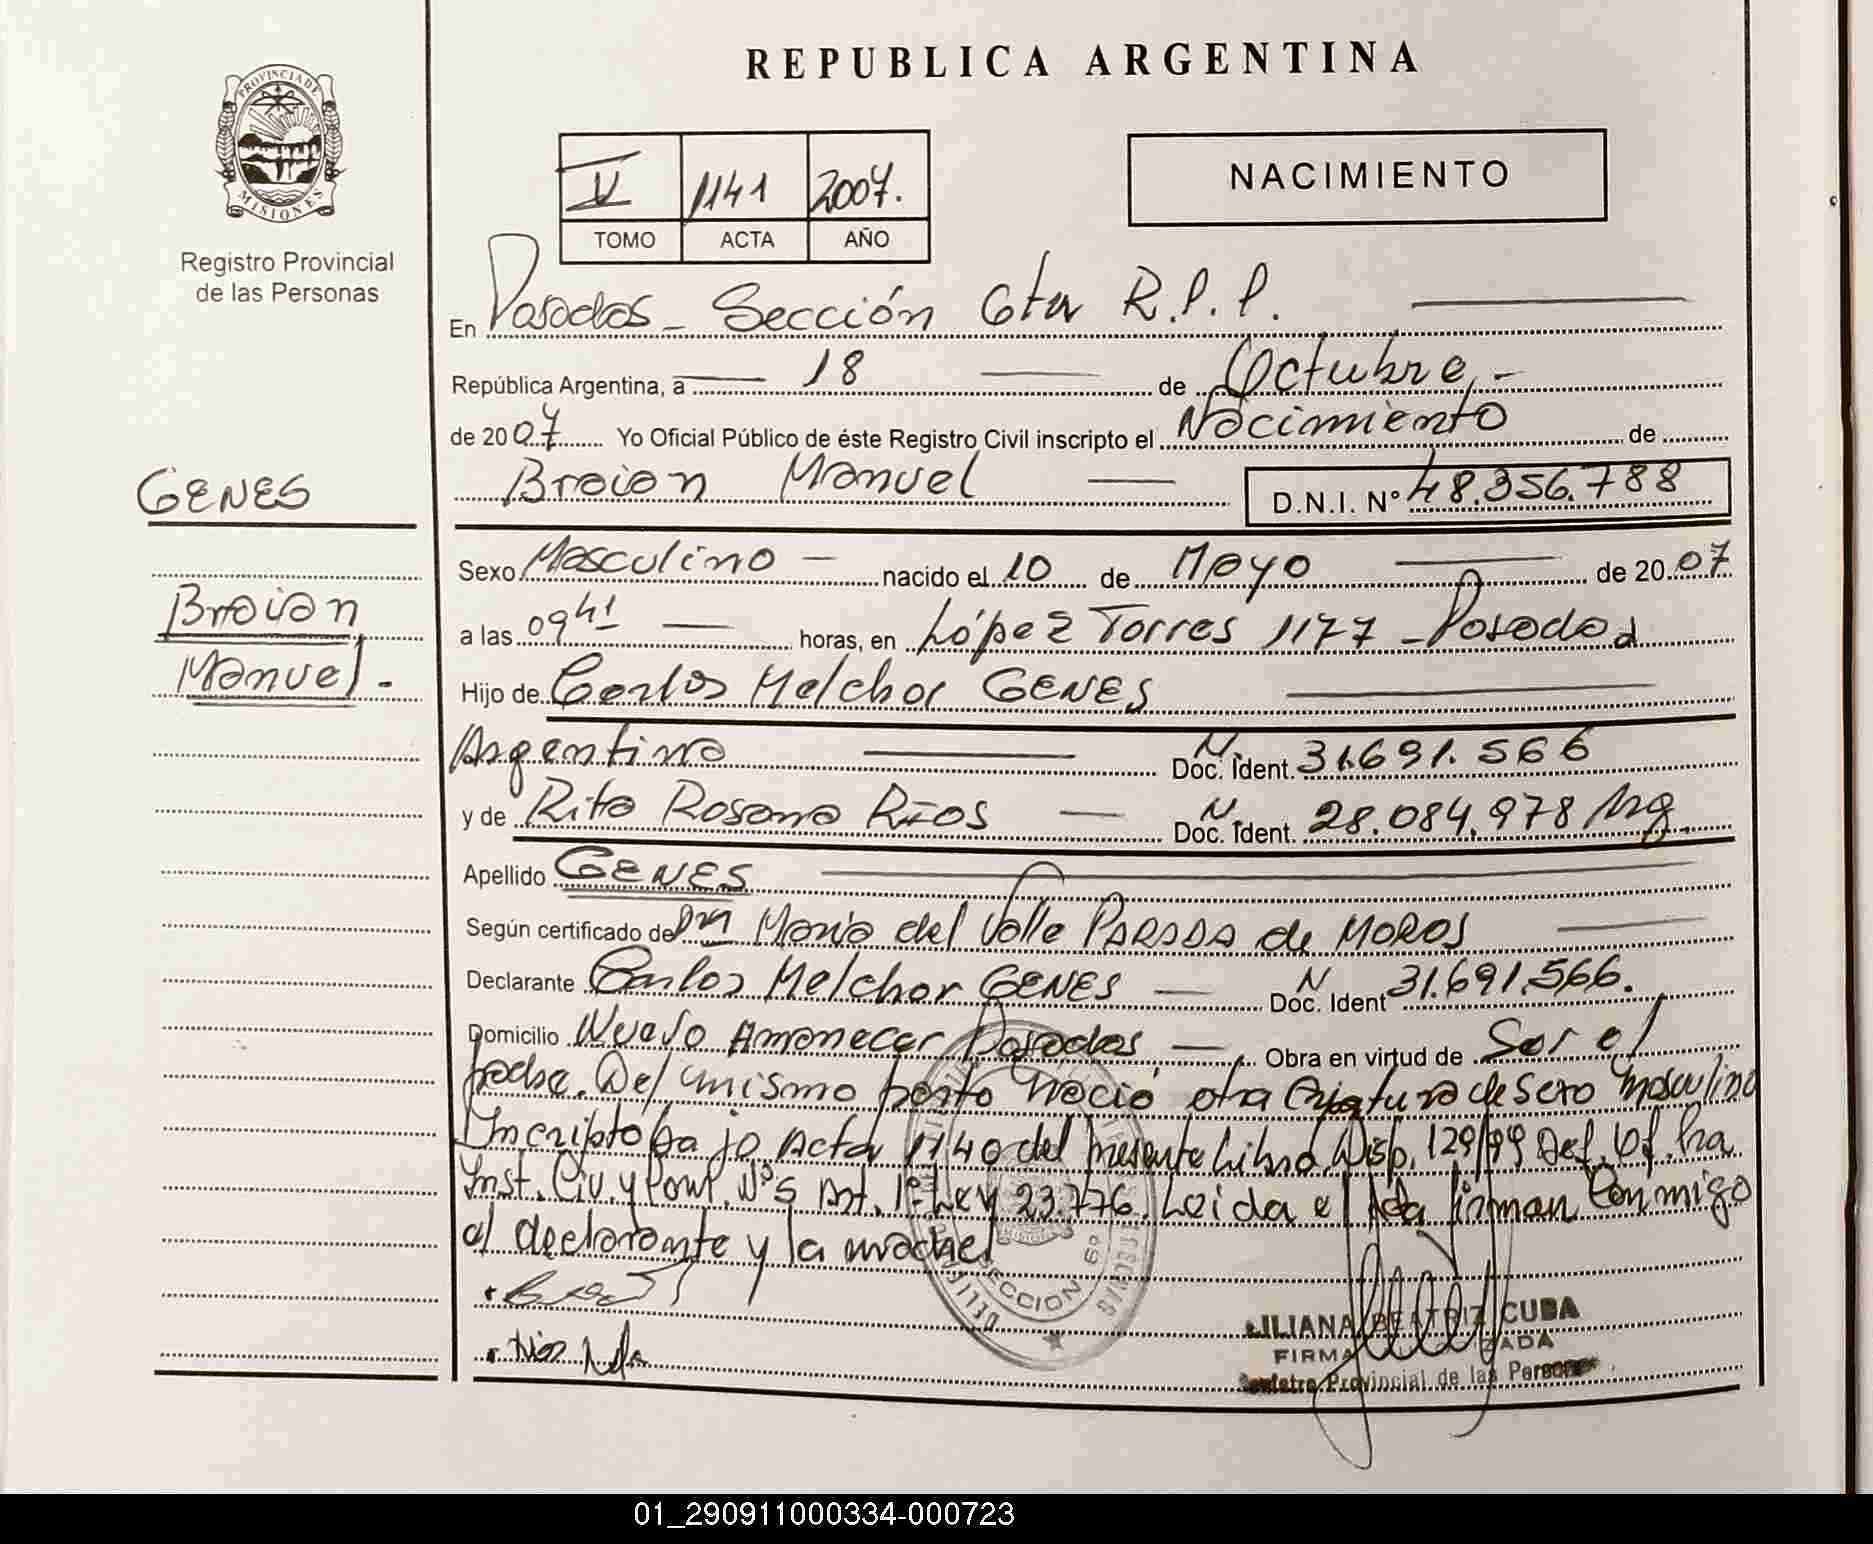 REPUBLICA ARGENTINA
PROVINCIA DE
MISIONES
Registro Provincial
de las Personas
V 1141 2007.
TOMO ACTA AÑO
NACIMIENTO
En Posadas - Sección 6ta R.P.P.
República Argentina, a 18 de Octubre.-
de 2007 Yo Oficial Público de éste Registro Civil inscripto el Nacimiento de
Braian Manuel D.N.I. Nº 48.356.788
GENES
Braian
Manuel.-
Sexo Masculino nacido el 10 de Mayo de 2007
a las 09 41 horas, en López Torres 1177 - Posadas
Hijo de Carlos Melchor GENES
Argentino N Doc. Ident. 31.691.566
y de Rita Rosana Ríos N Doc. Ident. 28.084.978 Arg.
Apellido GENES
Según certificado de Dra María del Valle PARADA de MOROS
Declarante Carlos Melchor GENES N Doc. Ident 31.691.566.
Domicilio Nuevo Amanecer Posadas, Obra en virtud de Ser el
padre. Del mismo parto nació otra criatura de sexo masculino
Incripto bajo Acta 1140 del presente Libro. Disp. 129/99 Def. Of. Pra.
Inst. Civ. y Nº5 Art. 1º Ley 23.776. Leida el Acta firman Conmigo
el declarante y la madre
SECCION 6º
LILIANA BEATRIZ CUBA
Registro Provincial de las Personas
01_290911000334-000723